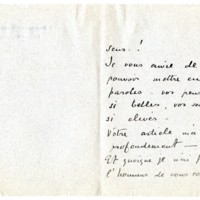 sens..!
Je vous envie de
pouvoir mettre en
paroles - vos pen
si belles, vos so
si élevés.
Votre article m'a
profondément —
Et quoique je n'ai p
l'honneur de vous co